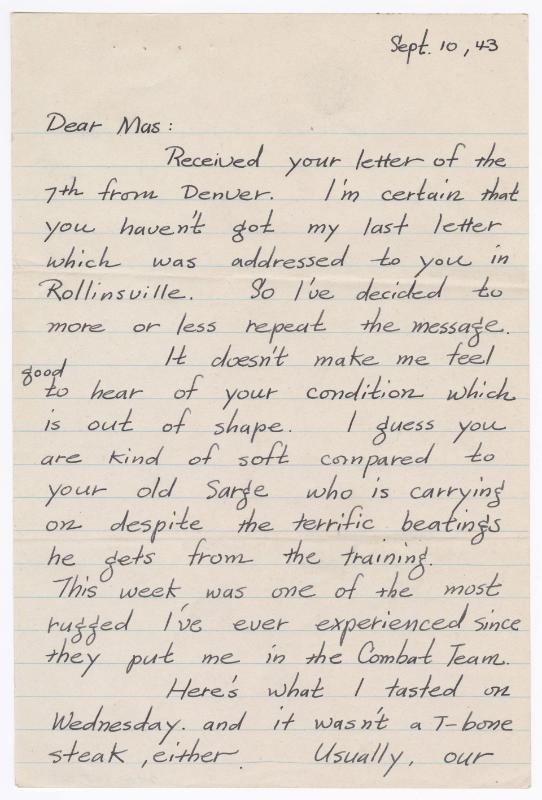 Sept. 10, 43
Dear Mas:
Received your letter of the
7th from Denver. I'm certain that
you haven't got my last letter
which was addressed to you in
Rollinsville. So I've decided to
more or less repeat the message.
It doesn't make me feel
good
to hear of your condition which
is out of shape. I guess you
are kind of soft compared to
your old Sarge who is carrying
on despite the terrific beatings
he gets from the training.
This week was one of the most
rugged I've ever experienced since
they put me in the Combat Team.
Here's what I tasted on
Wednesday. and it wasn't a T-bone
steak, either. Usually, our